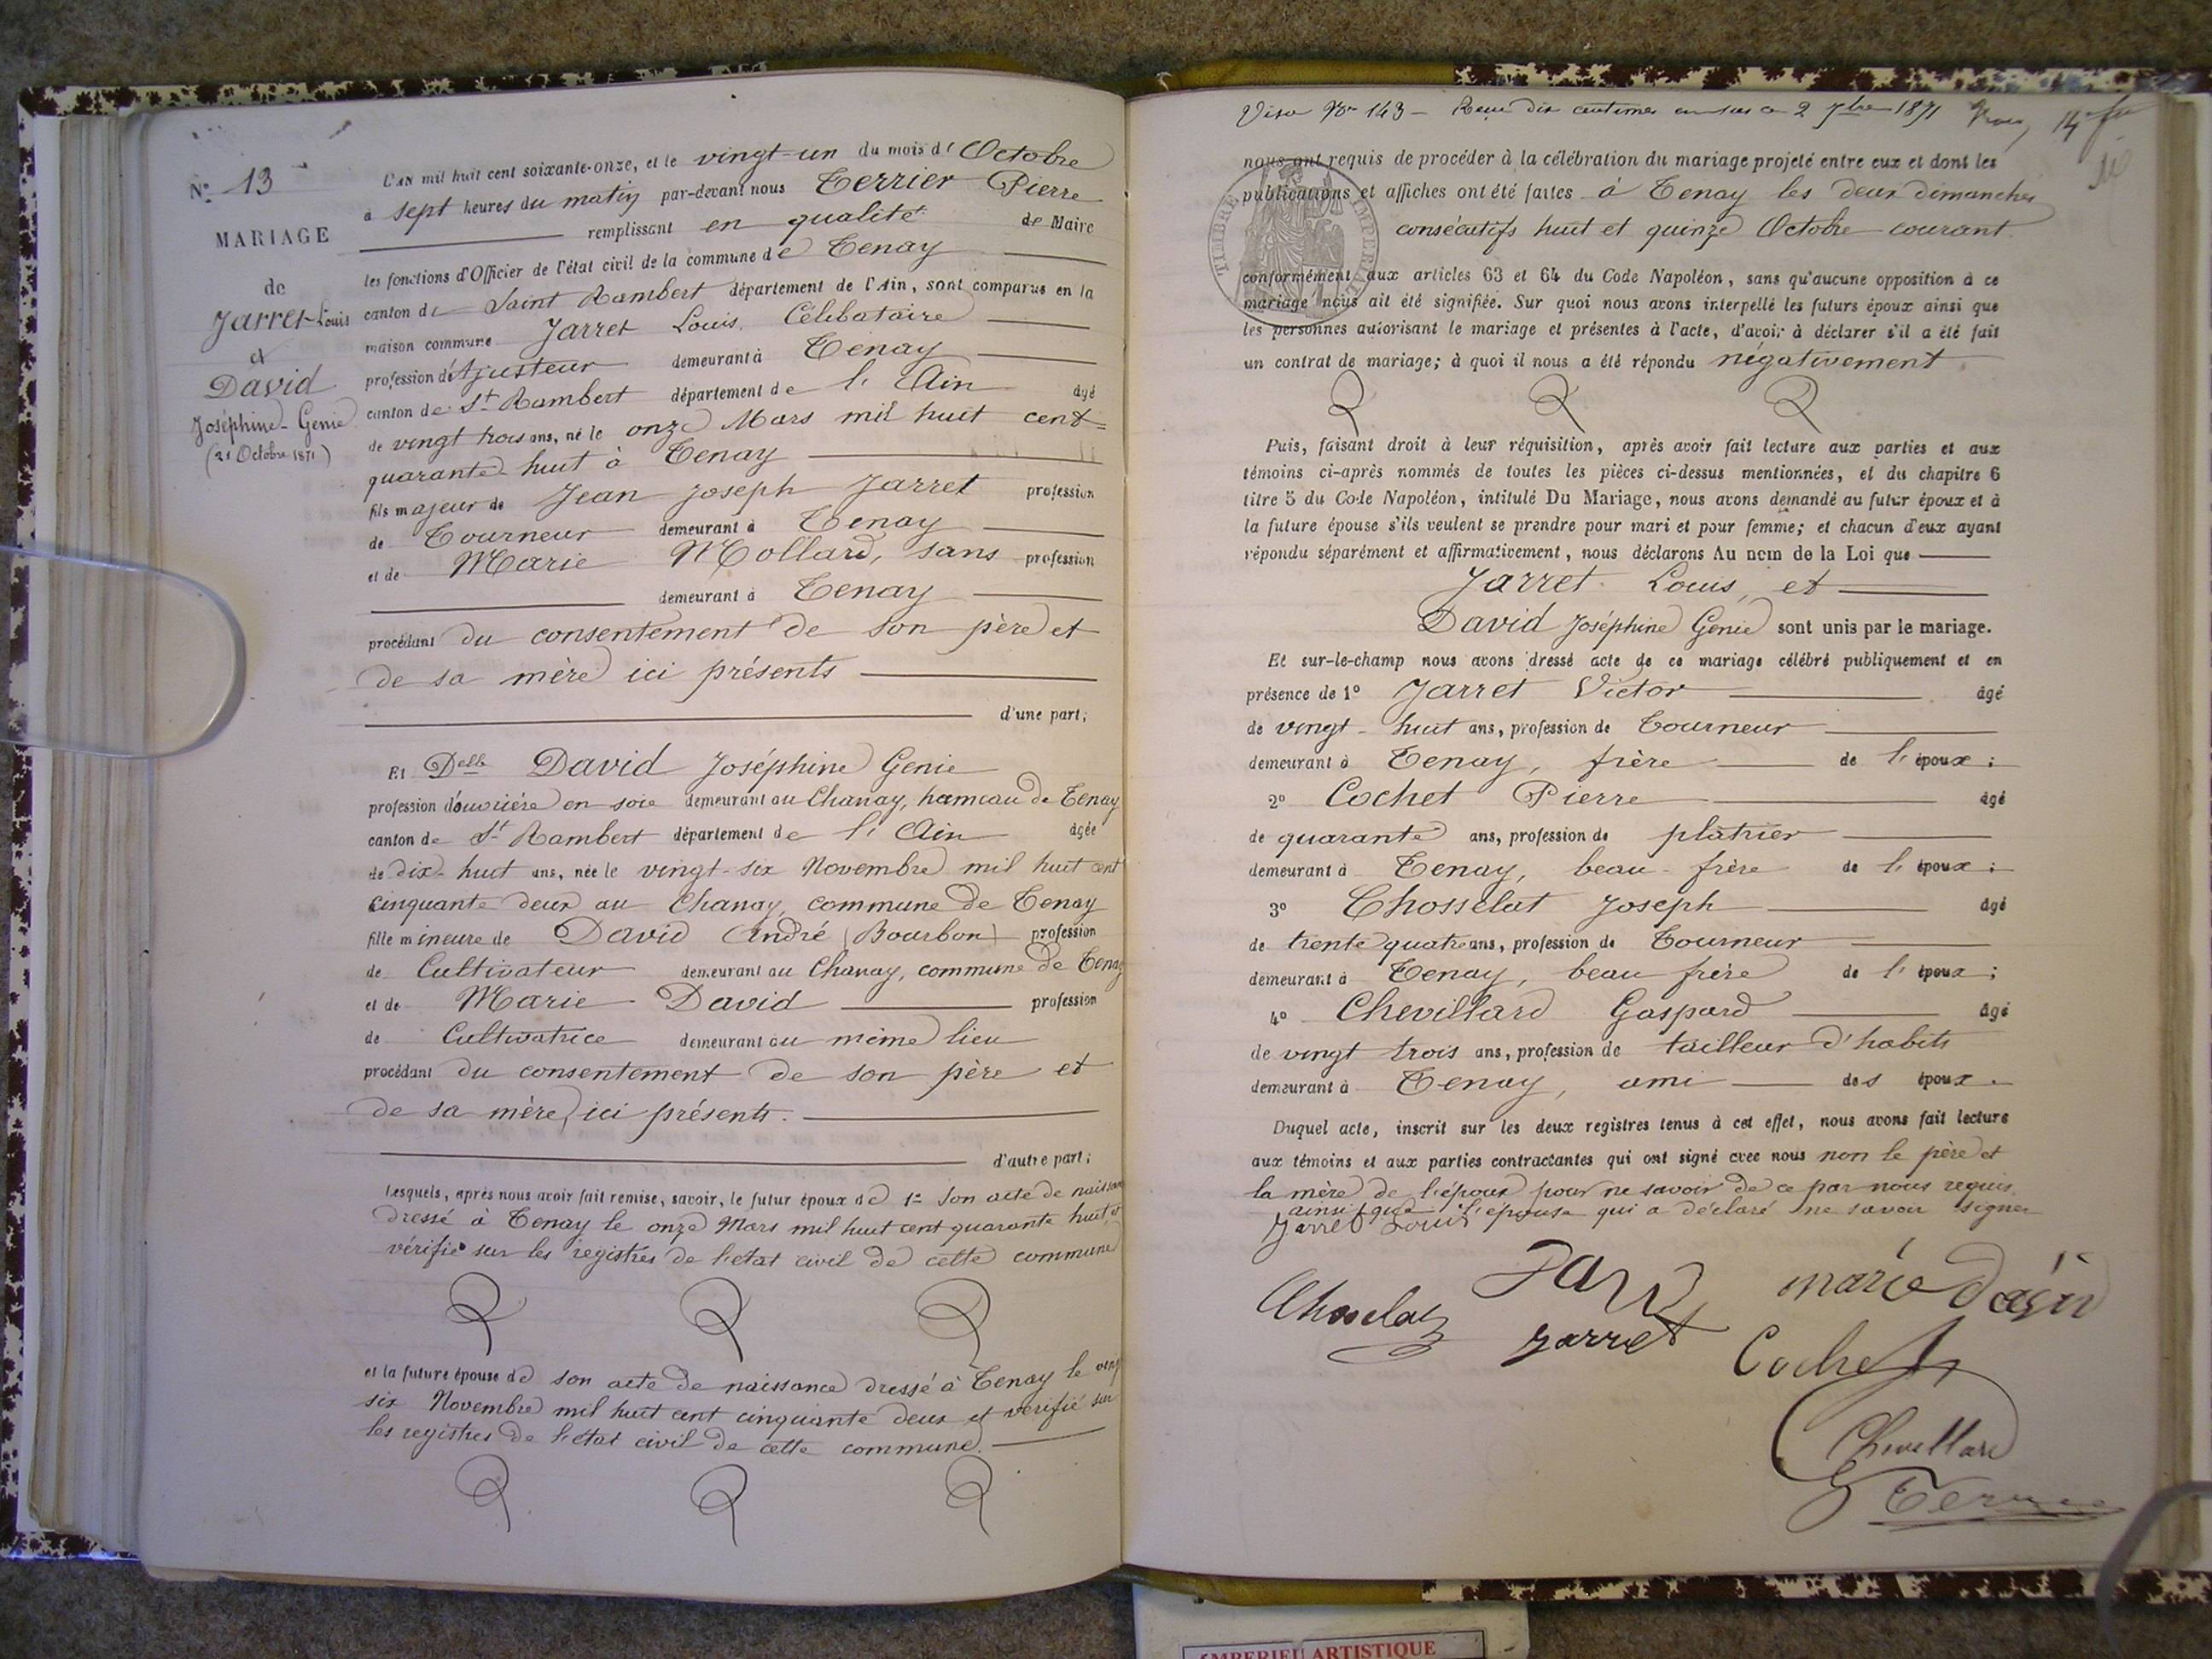 N° 13
MARIAGE
de
Jarret Louis
et
David
Joséphine Génie
(21 Octobre 1871)
L'AN mil huit cent soixante-onze, et le vingt-un du mois d'Octobre
à sept heures du matin par-devant nous Terrier Pierre
remplissant en qualité de Maire
les fonctions d'Officier de l'état civil de la commune de Tenay
canton de Saint Rambert département de l'Ain, sont comparus en la
maison commune Jarret Louis, Célibataire
profession d'Ajusteur demeurant à Tenay
canton de St Rambert département de l'Ain âgé
de vingt trois ans, né le onze Mars mil huit cent
quarante huit à Tenay
fils majeur de Jean Joseph Jarret profession
de Tourneur demeurant à Tenay
et de Marie Mollard, sans profession
demeurant à Tenay
procédant du consentement de son père et
de sa mère ici présents
d'une part;
Et Delle David Joséphine Genie
profession d'ouvrière en soie demeurant au Chanay, hameau de Tenay
canton de St Rambert département de l'Ain âgée
de dix-huit ans, née le vingt-six Novembre mil huit cent
cinquante deux au Chanay, commune de Tenay
fille mineure de David André (Bourbon) profession
de Cultivateur demeurant au Chanay, commune de Tenay
et de Marie David profession
de Cultivatrice demeurant au même lieu
procédant du consentement de son père et
de sa mère, ici présents.
d'autre part;
Lesquels, après nous avoir fait remise, savoir, le futur époux de 1° Son acte de naissance
dressé à Tenay le onze Mars mil huit cent quarante huit, et
vérifié sur les registres de l'état civil de cette commune
et la future épouse de son acte de naissance dressé à Tenay le vingt
six Novembre mil huit cent cinquante deux et vérifié sur
les registres de l'état civil de cette commune.
Visa No 143 - Reçu dix centimes en sus a 2 7bre 1871
nous ont requis de procéder à la célébration du mariage projeté entre eux et dont les
publications et affiches ont été faites à Tenay les deux dimanches
consécutifs huit et quinze Octobre courant
conformément aux articles 63 et 64 du Code Napoléon, sans qu'aucune opposition à ce
mariage nous ait été signifiée. Sur quoi nous avons interpellé les futurs époux ainsi que
les personnes autorisant le mariage et présentes à l'acte, d'avoir à déclarer s'il a été fait
un contrat de mariage; à quoi il nous a été répondu négativement
TIMBRE IMPERIAL
Puis, faisant droit à leur réquisition, après avoir fait lecture aux parties et aux
témoins ci-après nommés de toutes les pièces ci-dessus mentionnées, et du chapitre 6
titre 5 du Code Napoléon, intitulé Du Mariage, nous avons demandé au futur époux et à
la future épouse s'ils veulent se prendre pour mari et pour femme; et chacun d'eux ayant
répondu séparément et affirmativement, nous déclarons Au nom de la Loi que
Jarret Louis, et
David Joséphine Genie sont unis par le mariage.
Et sur-le-champ nous avons dressé acte de ce mariage célébré publiquement et en
présence de 1° Jarret Victor âgé
de vingt-huit ans, profession de Tourneur
demeurant à Tenay, frère de l'époux;
2° Cochet Pierre âgé
de quarante ans, profession de plâtrier
demeurant à Tenay, beau-frère de l'époux;
3° Chosselat Joseph âgé
de trente quatre ans, profession de Tourneur
demeurant à Tenay, beau frère de l'époux;
4° Chevillard Gaspard âgé
de vingt trois ans, profession de tailleur d'habits
demeurant à Tenay, ami des époux.
Duquel acte, inscrit sur les deux registres tenus à cet effet, nous avons fait lecture
aux témoins et aux parties contractantes qui ont signé avec nous non le père et
la mère de l'époux pour ne savoir de ce par nous requis
ainsi que l'épouse qui a déclaré ne savoir signer
Jarret Louis
Choselat
Jarret
marie David
Cochet
Chevillard
Terrier
AMBERIEU ARTISTIQUE